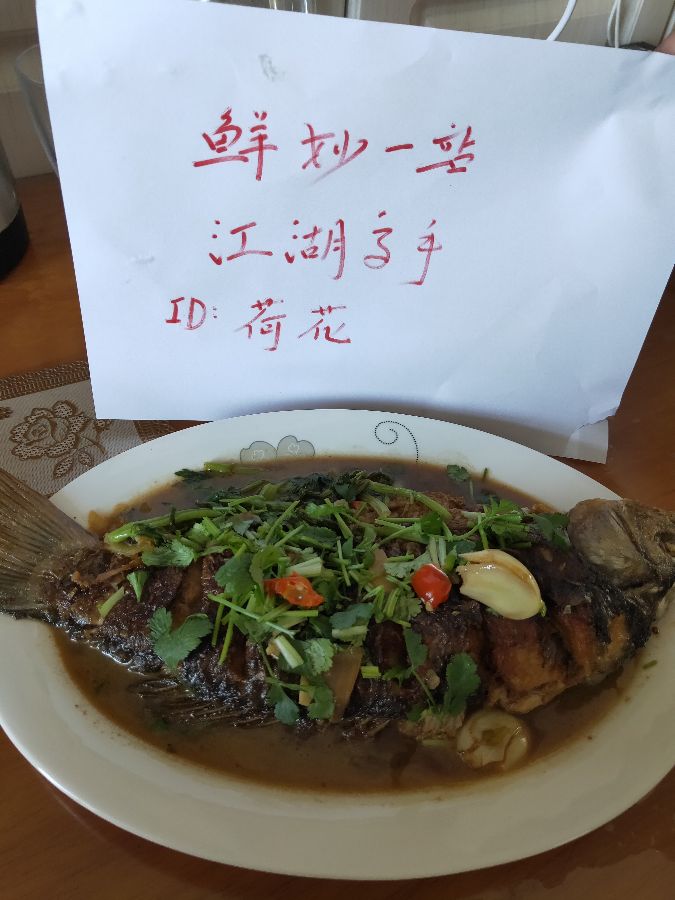 鲜妙一站
江湖高手
ID:荷花